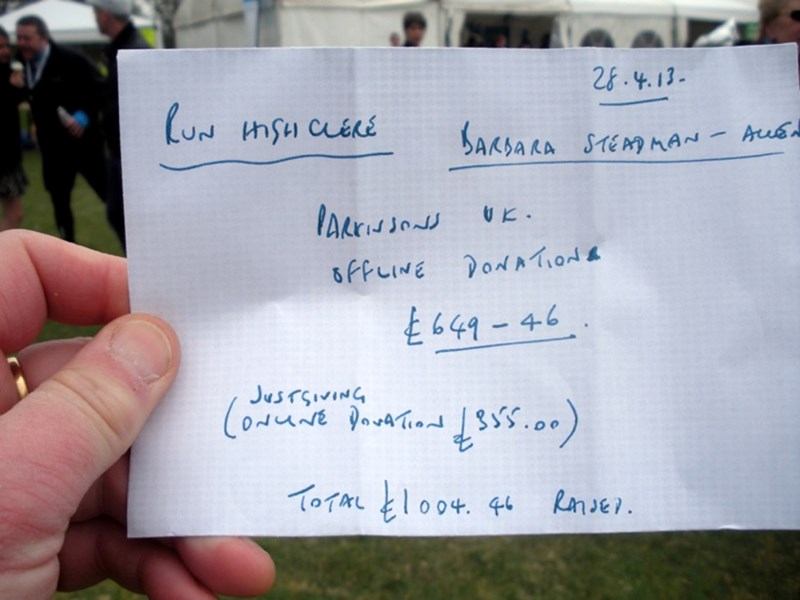 28.4.13.
RUN HIGHCLERE
BARBARA STEADMAN - ALLEN
PARKINSONS UK.
OFFLINE DONATIONS
£649-46.
JUSTGIVING
(ONLINE DONATION £355.00)
TOTAL £1004.46 RAISED.